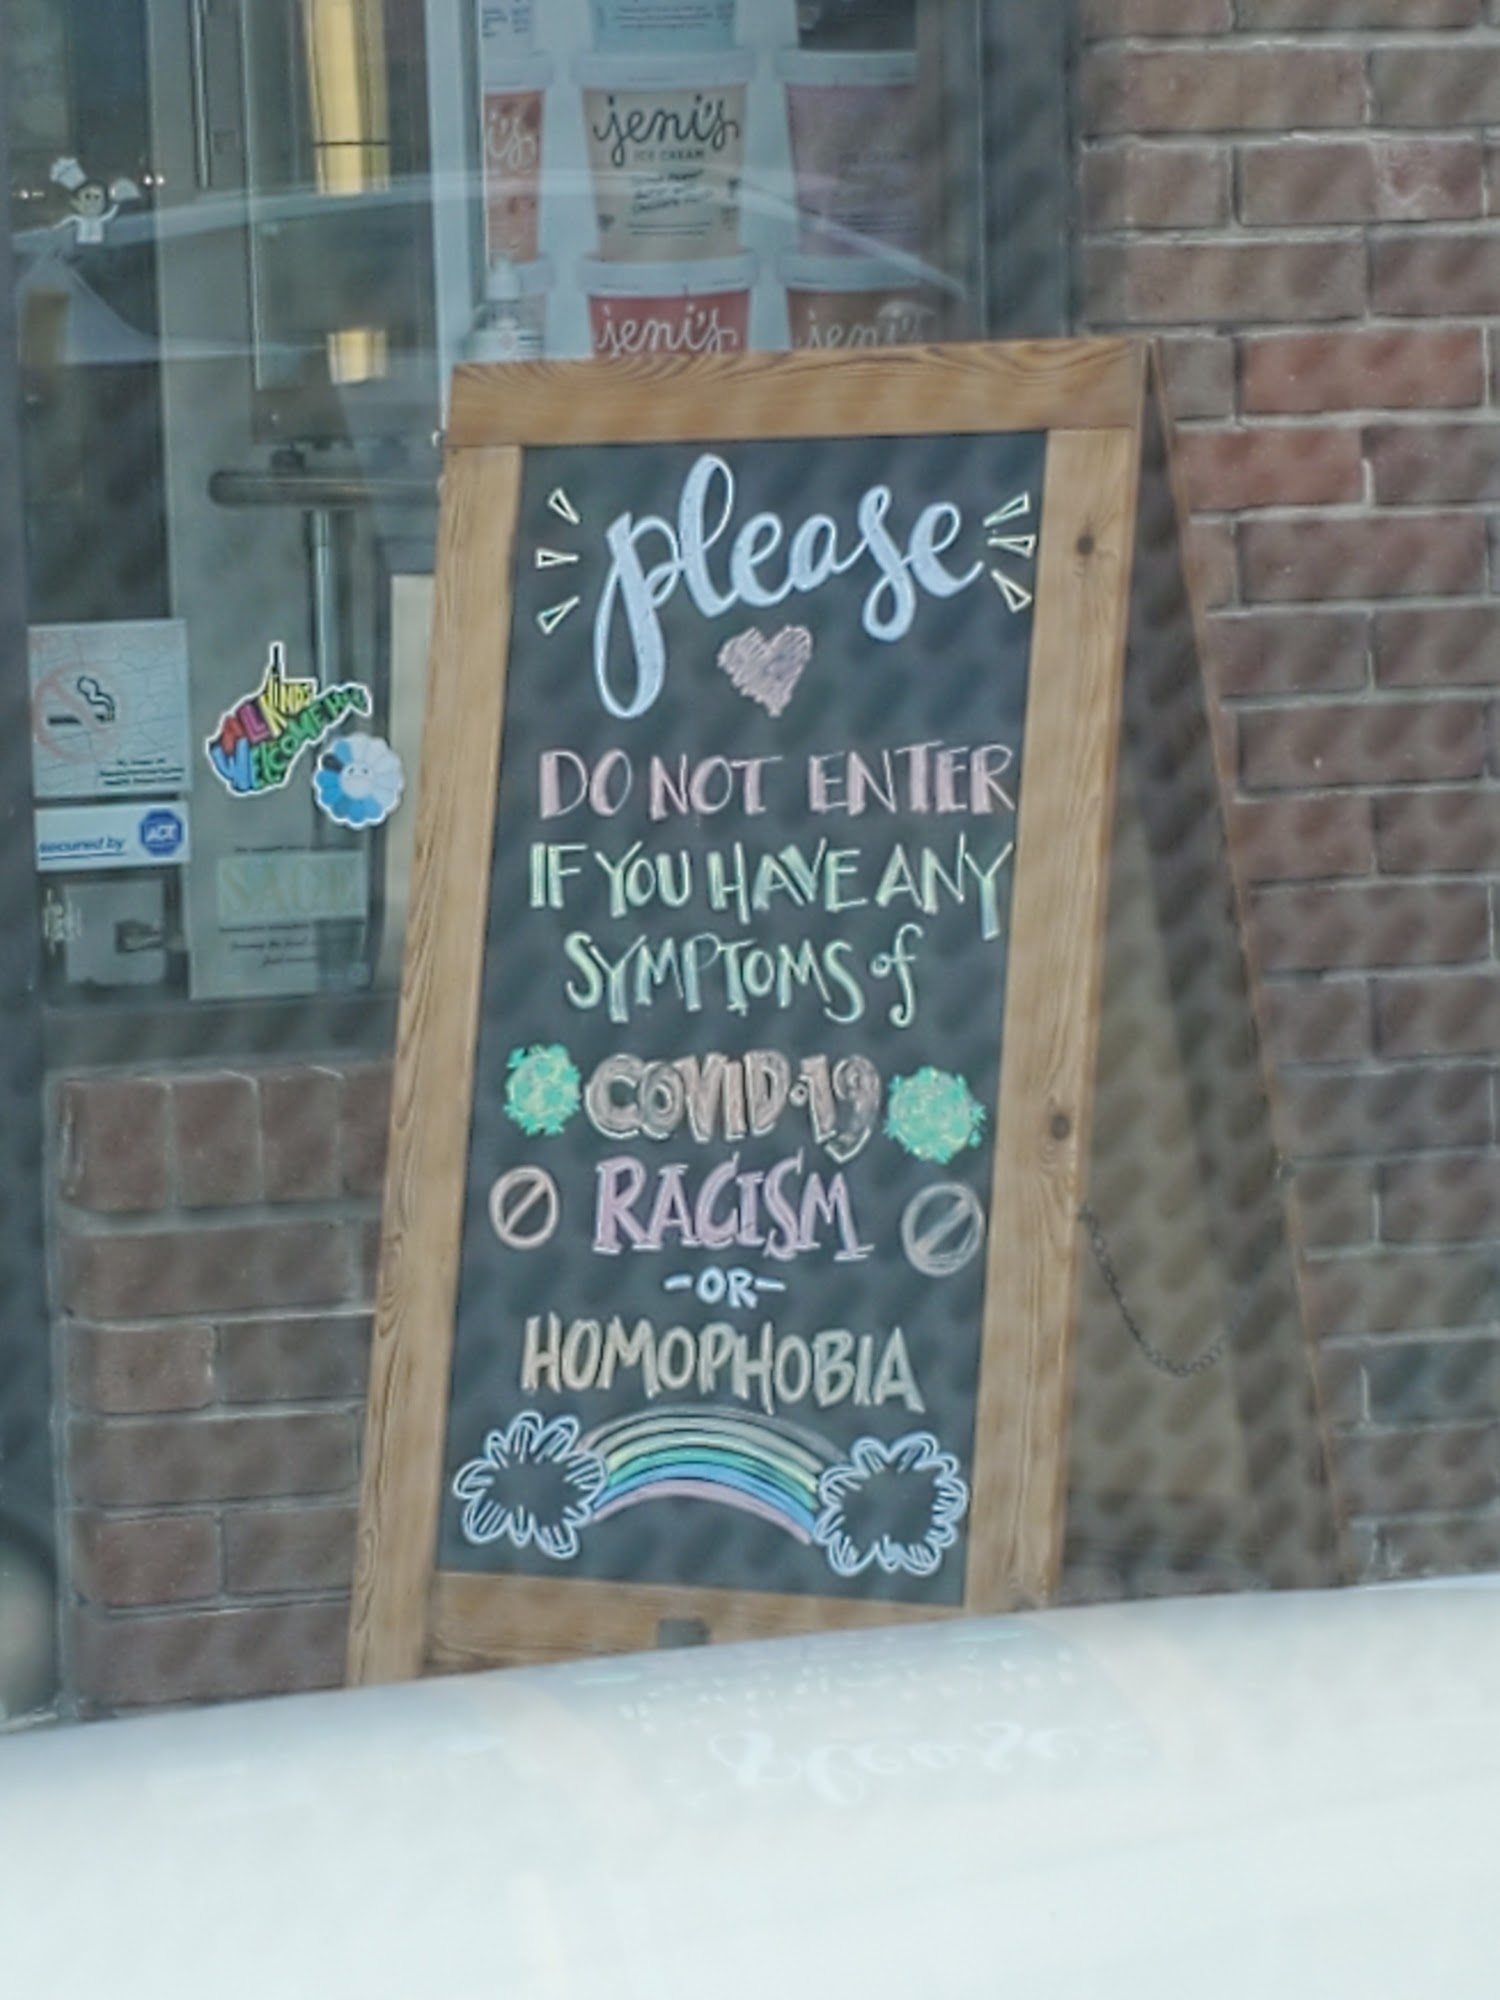 jeni's
ICE CREAM
jeni's
jeni's
please
DO NOT ENTER
IF YOU HAVE ANY
SYMPTOMS of
COVID-19
RACISM
-OR-
HOMOPHOBIA
ALL KINDS
WELCOME HERE
secured by ADT